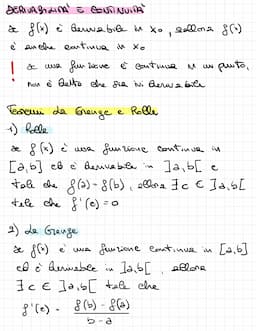 DERIVABILITÀ E CONTINUITÀ
se f(x) è derivabile in x₀, allora f(x)
è anche continua in x₀
! se una funzione è continua in un punto,
non è detto che sia ivi derivabile
Teoremi de Lagrange e Rolle
1) Rolle
se f(x) è una funzione continua in
[a,b] ed è derivabile in ]a,b[ e
tale che f(a)=f(b), allora ∃c ∈ ]a,b[
tale che f'(c)=0
2) de Lagrange
se f(x) è una funzione continua in [a,b]
ed è derivabile in ]a,b[, allora
∃c ∈ ]a,b[ tale che
f'(c) = f(b) - f(a)
b-a